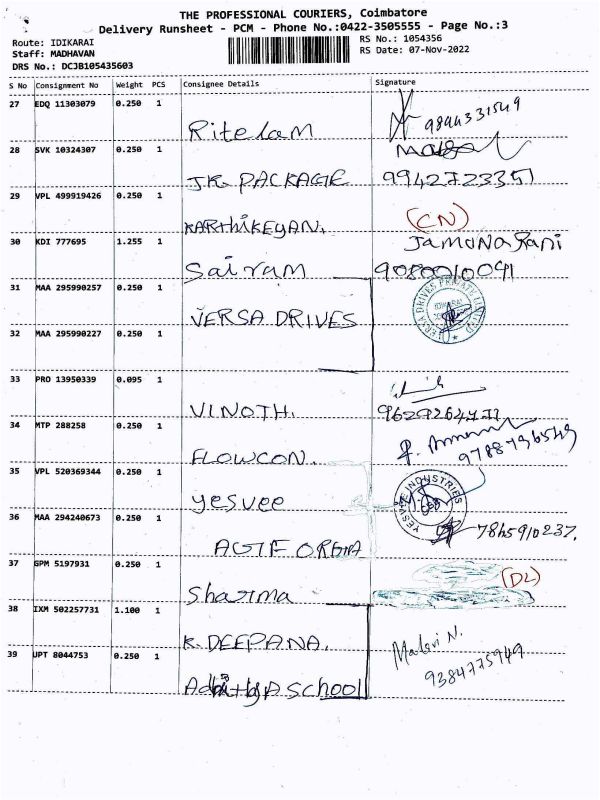 THE PROFESSIONAL COURIERS, Coimbatore
Delivery Runsheet - PCM - Phone No.:0422-3505555 - Page No.:3
Route: IDIKARAI
RS No.: 1054356
Staff: MADHAVAN
RS Date: 07-Nov-2022
DRS No.: DCJB105435603
S No Consignment No Weight PCS Consignee Details Signature
27 EDQ 11303079 0.250 1
Ritelam 9894331549
28 SVK 10324307 0.250 1
JK PACKAGE 9942723351
29 VPL 499919426 0.250 1
KARTHIKEYAN. (CN)
30 KDI 777695 1.255 1 Jamuna Rani
Sairam 9080010091
31 MAA 295990257 0.250 1
VERSA DRIVES VERSA DRIVES PRIVATE LIMITED
32 MAA 295990227 0.250 1
33 PRO 13950339 0.095 1
VINOTH.
34 MTP 288258 0.250 1
FLOWCON. 9788796549
35 VPL 520369344 0.250 1
yesvee YESVEE INDUSTRIES
36 MAA 294240673 0.250 1
7845910237.
37 GPM 5197931 0.250 1
Sharma (DL)
38 IXM 502257731 1.100 1
K. DEEPANA.
39 JPT 8044753 0.250 1 Malavi N.
School 9384775949